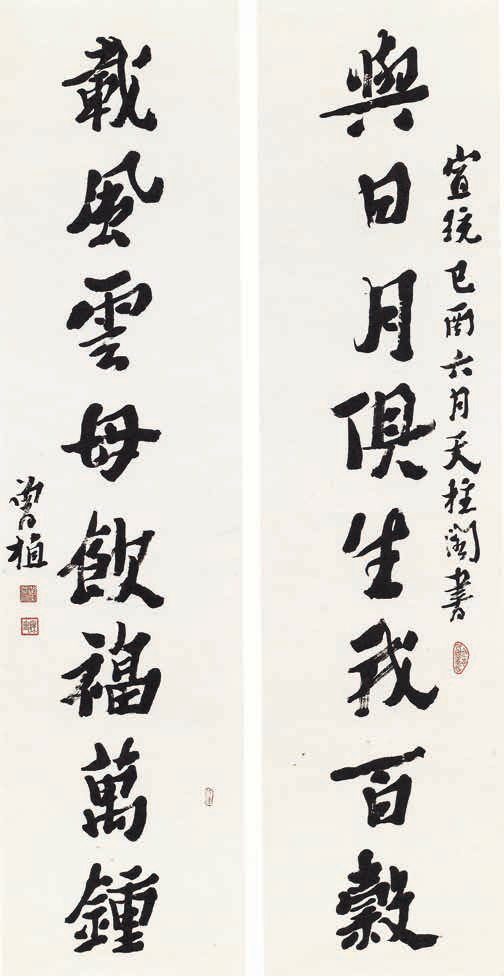 宣統己酉六月天柱閣書
與日月俱生我百穀
載風雲毋飲福萬鍾
曾植